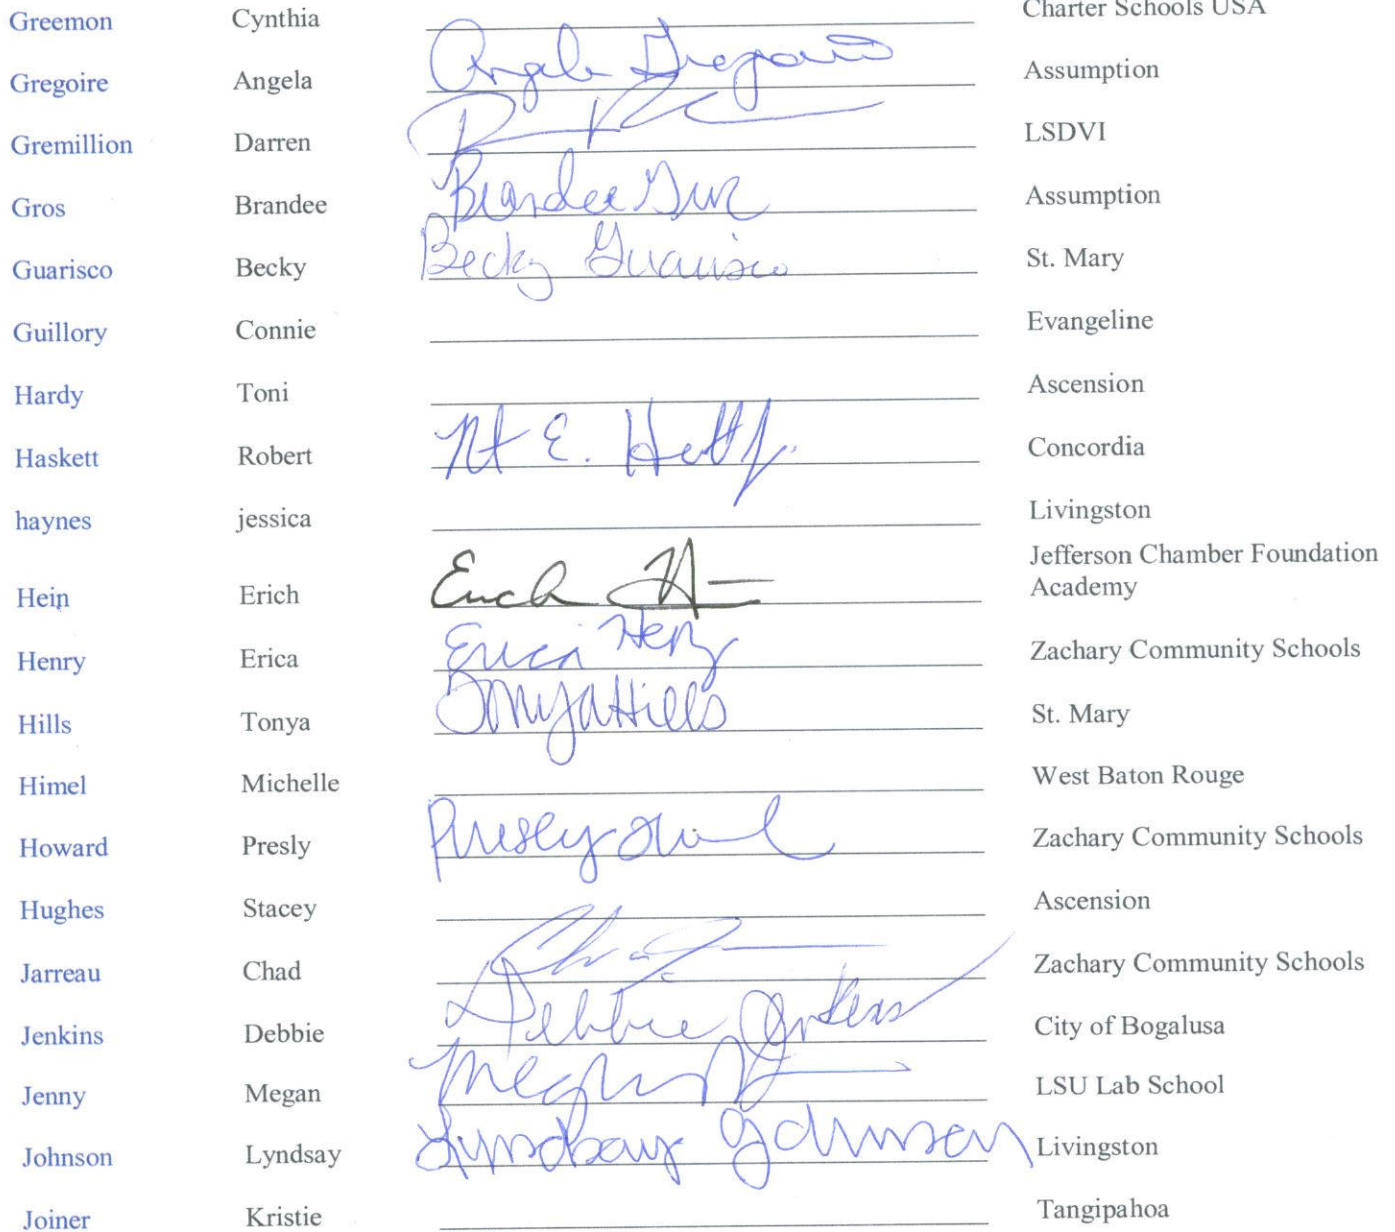 Greemon Cynthia Charter Schools USA
Gregoire Angela Angela Gregoire Assumption
Gremillion Darren LSDVI
Gros Brandee Brandee Gros Assumption
Guarisco Becky Becky Guarisco St. Mary
Guillory Connie Evangeline
Hardy Toni Ascension
Haskett Robert E. Concordia
haynes jessica Livingston
Jefferson Chamber Foundation
Hein Erich Erich H Academy
Henry Erica Erica Henry Zachary Community Schools
Hills Tonya Tonya Hills St. Mary
Himel Michelle West Baton Rouge
Howard Presly Presley Zachary Community Schools
Hughes Stacey Ascension
Jarreau Chad Zachary Community Schools
Jenkins Debbie Debbie Jenkins City of Bogalusa
Jenny Megan Megan LSU Lab School
Johnson Lyndsay Lyndsay Johnson Livingston
Joiner Kristie Tangipahoa